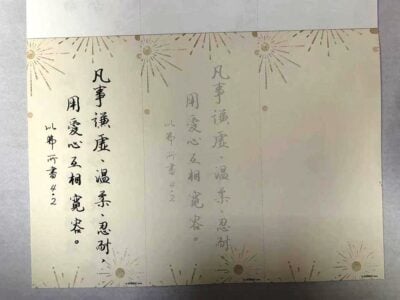 凡事謙虛、溫柔、忍耐，
用愛心互相寬容。
以弗所書4:2
凡事謙虛、溫柔、忍耐，
用愛心互相寬容。
以弗所書4:2